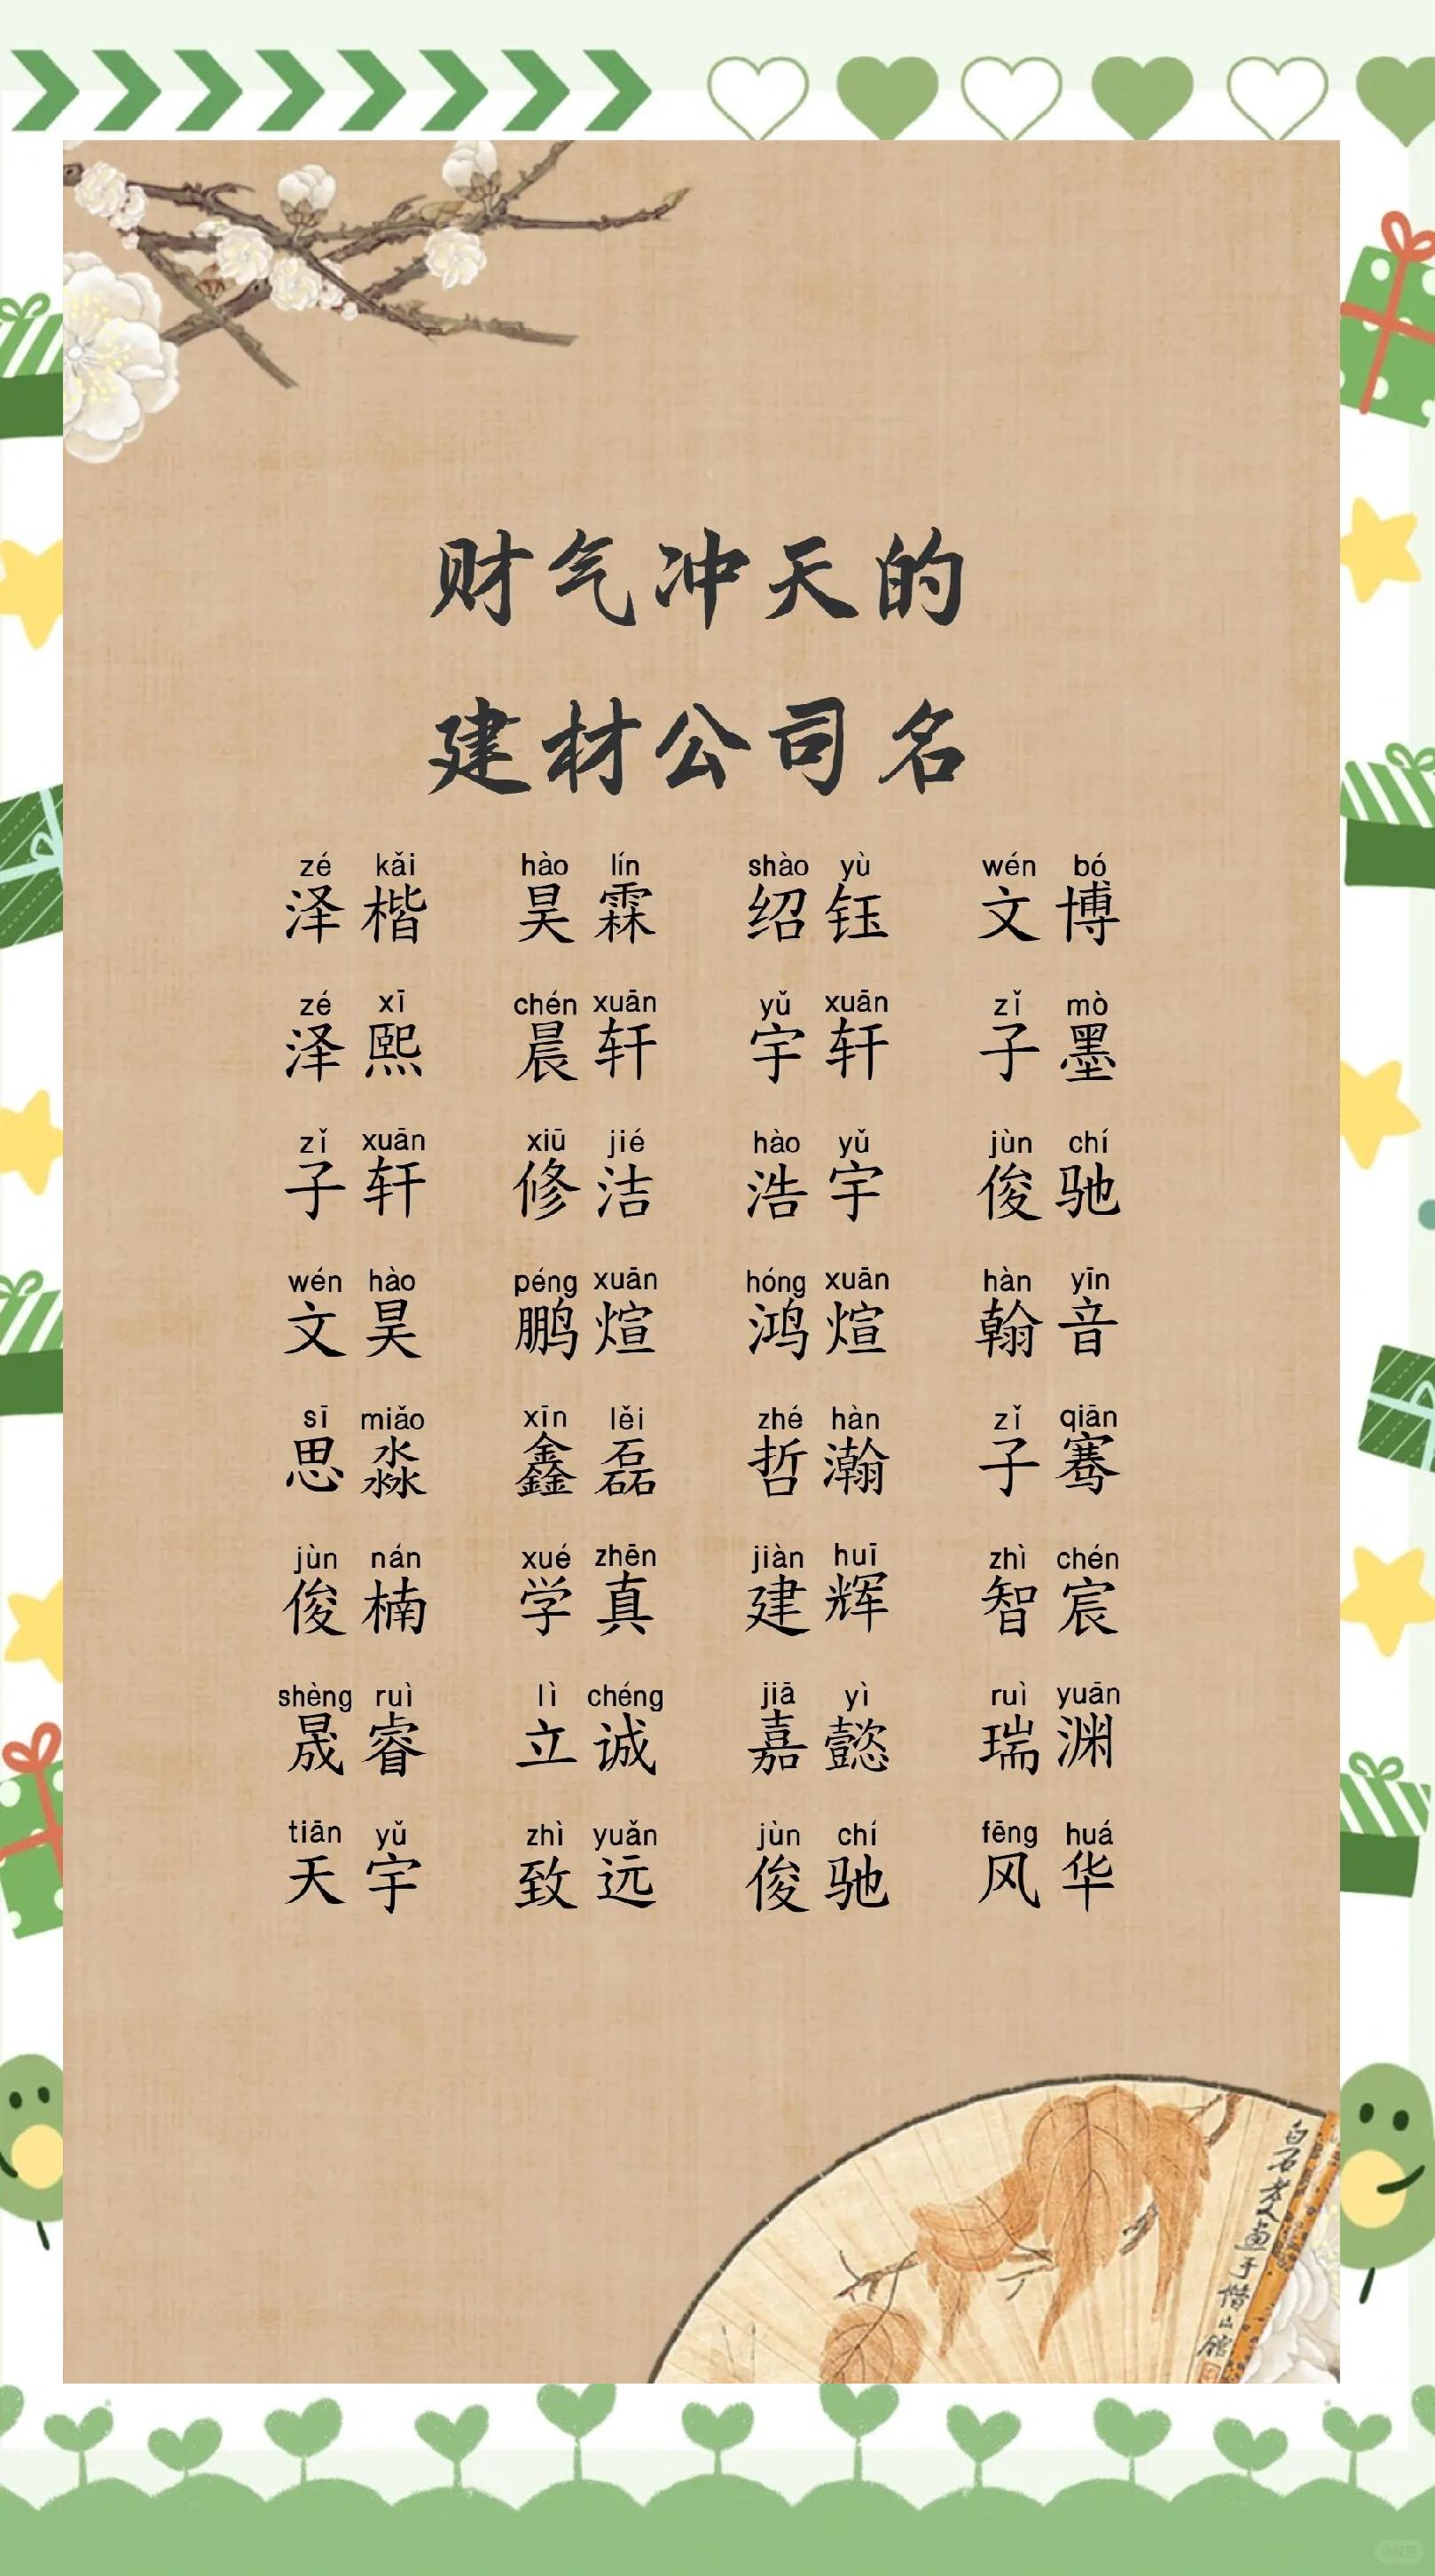 财气冲天的
建材公司名
zé kǎi hào lín shào yù wén bó
泽楷 昊霖 绍钰 文博
zé xī chén xuān yǔ xuān zǐ mò
泽熙 晨轩 宇轩 子墨
zǐ xuān xiū jié hào yǔ jùn chí
子轩 修洁 浩宇 俊驰
wén hào péng xuān hóng xuān hàn yīn
文昊 鹏煊 鸿煊 翰音
sī miǎo xīn lěi zhé hàn zǐ qiān
思淼 鑫磊 哲瀚 子骞
jùn nán xué zhēn jiàn huī zhì chén
俊楠 学真 建辉 智宸
shèng ruì lì chéng jiā yì ruì yuān
晟睿 立诚 嘉懿 瑞渊
tiān yǔ zhì yuǎn jùn chí fēng huá
天宇 致远 俊驰 风华
白石老人画于借山馆